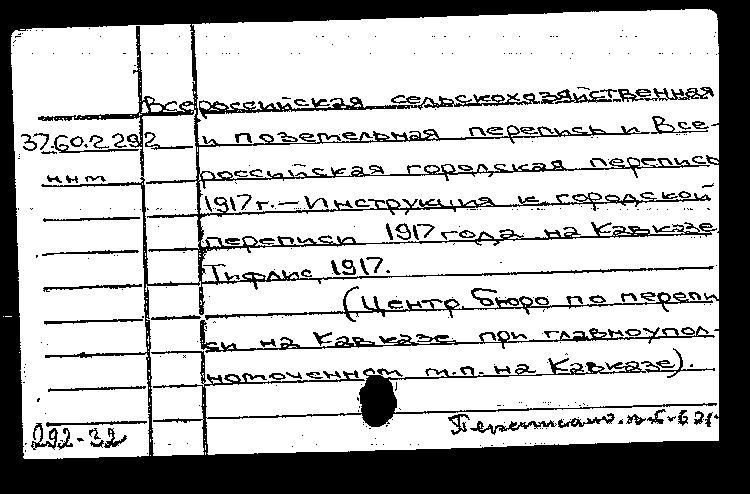 Всероссийская сельскохозяйственная
37.60.2 292 и поземельная перепись и Все-
ннт российская городская перепись
1917 г. — Инструкция к городской
переписи 1917 года на Кавказе
Тифлис, 1917.
(Центр. бюро по перепи
си на Кавказе при главноупол-
номоченном м.п. на Кавказе).
292-32